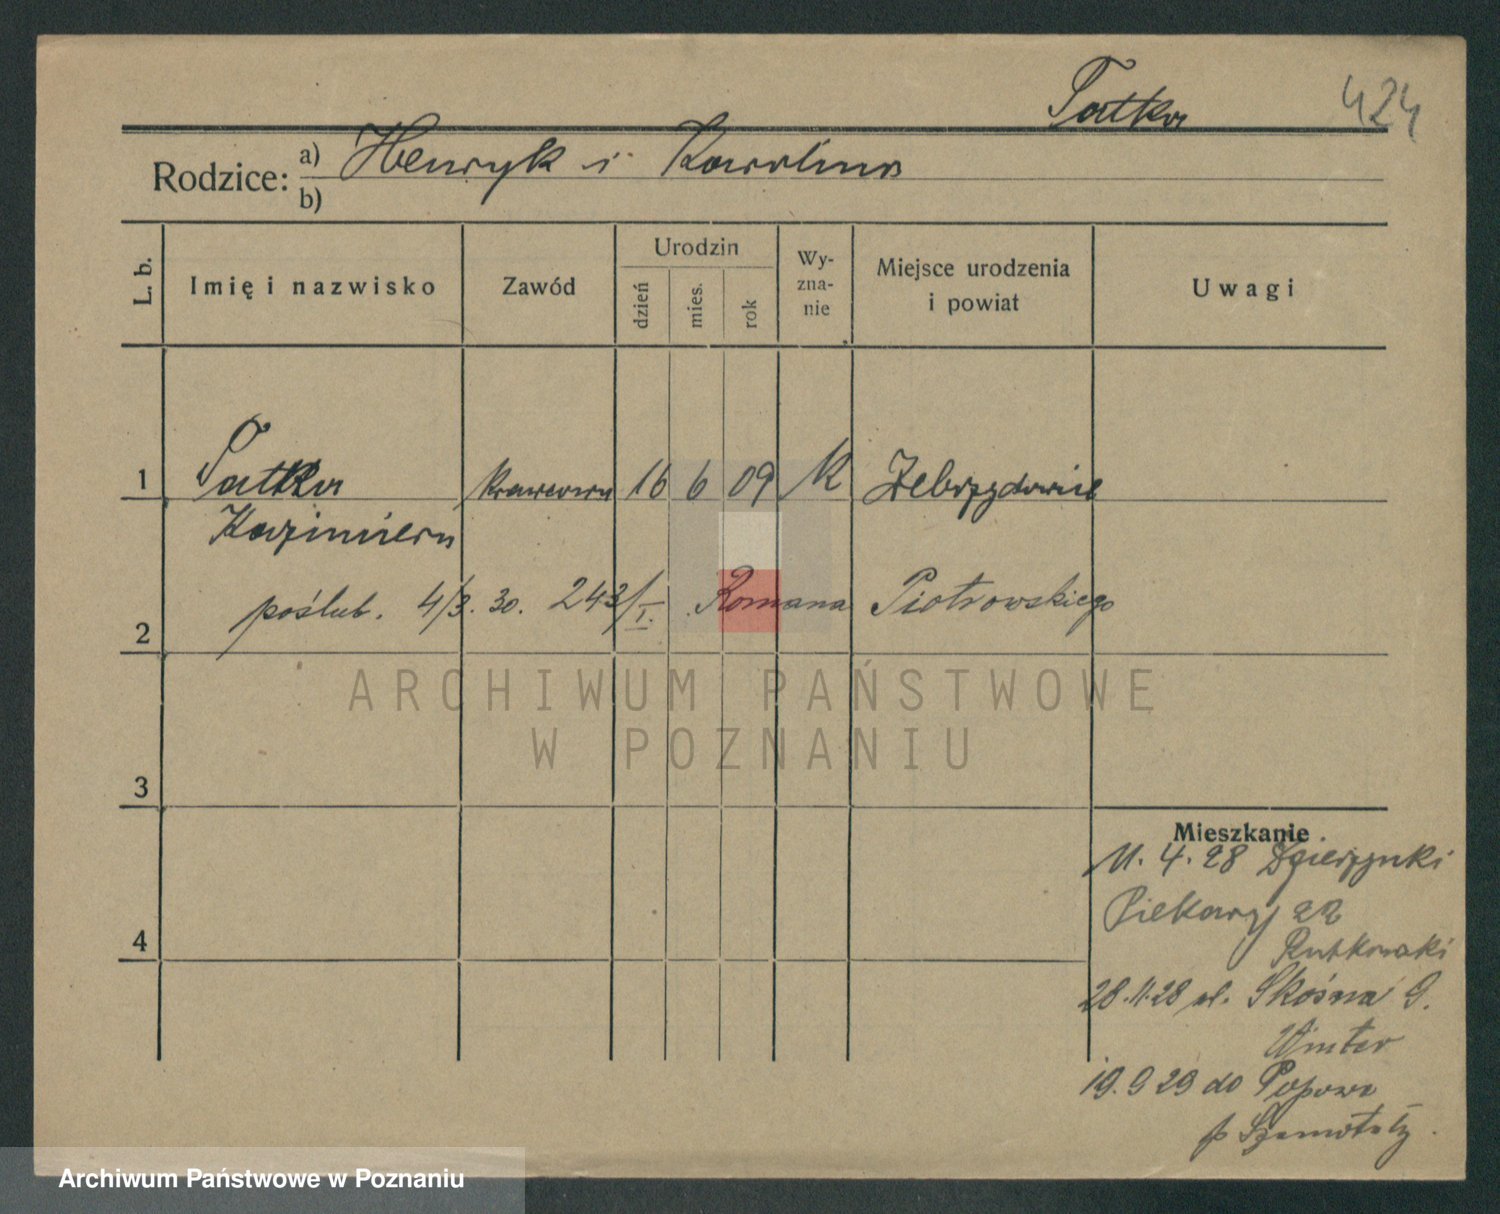 Tatka 424
Rodzice: a) Henryk i Karolina
b)
L. b. Imię i nazwisko Zawód Urodzin dzień mies. rok Wy-zna-nie Miejsce urodzenia i powiat Uwagi
1 Tatka krawcowa 16 6 09 K
Kazimiera
2 poślub. 4/3. 30. 243/I. Romana Piotrowskiego
ARCHIWUM PAŃSTWOWE
W POZNANIU
3
Mieszkanie
11. 4. 28
Piekary 22
4
Rutkowski
28.11.28 ul. Skośna 9.
Winter
19.9 29 do Popowa
p Szamotuły.
Archiwum Państwowe w Poznaniu